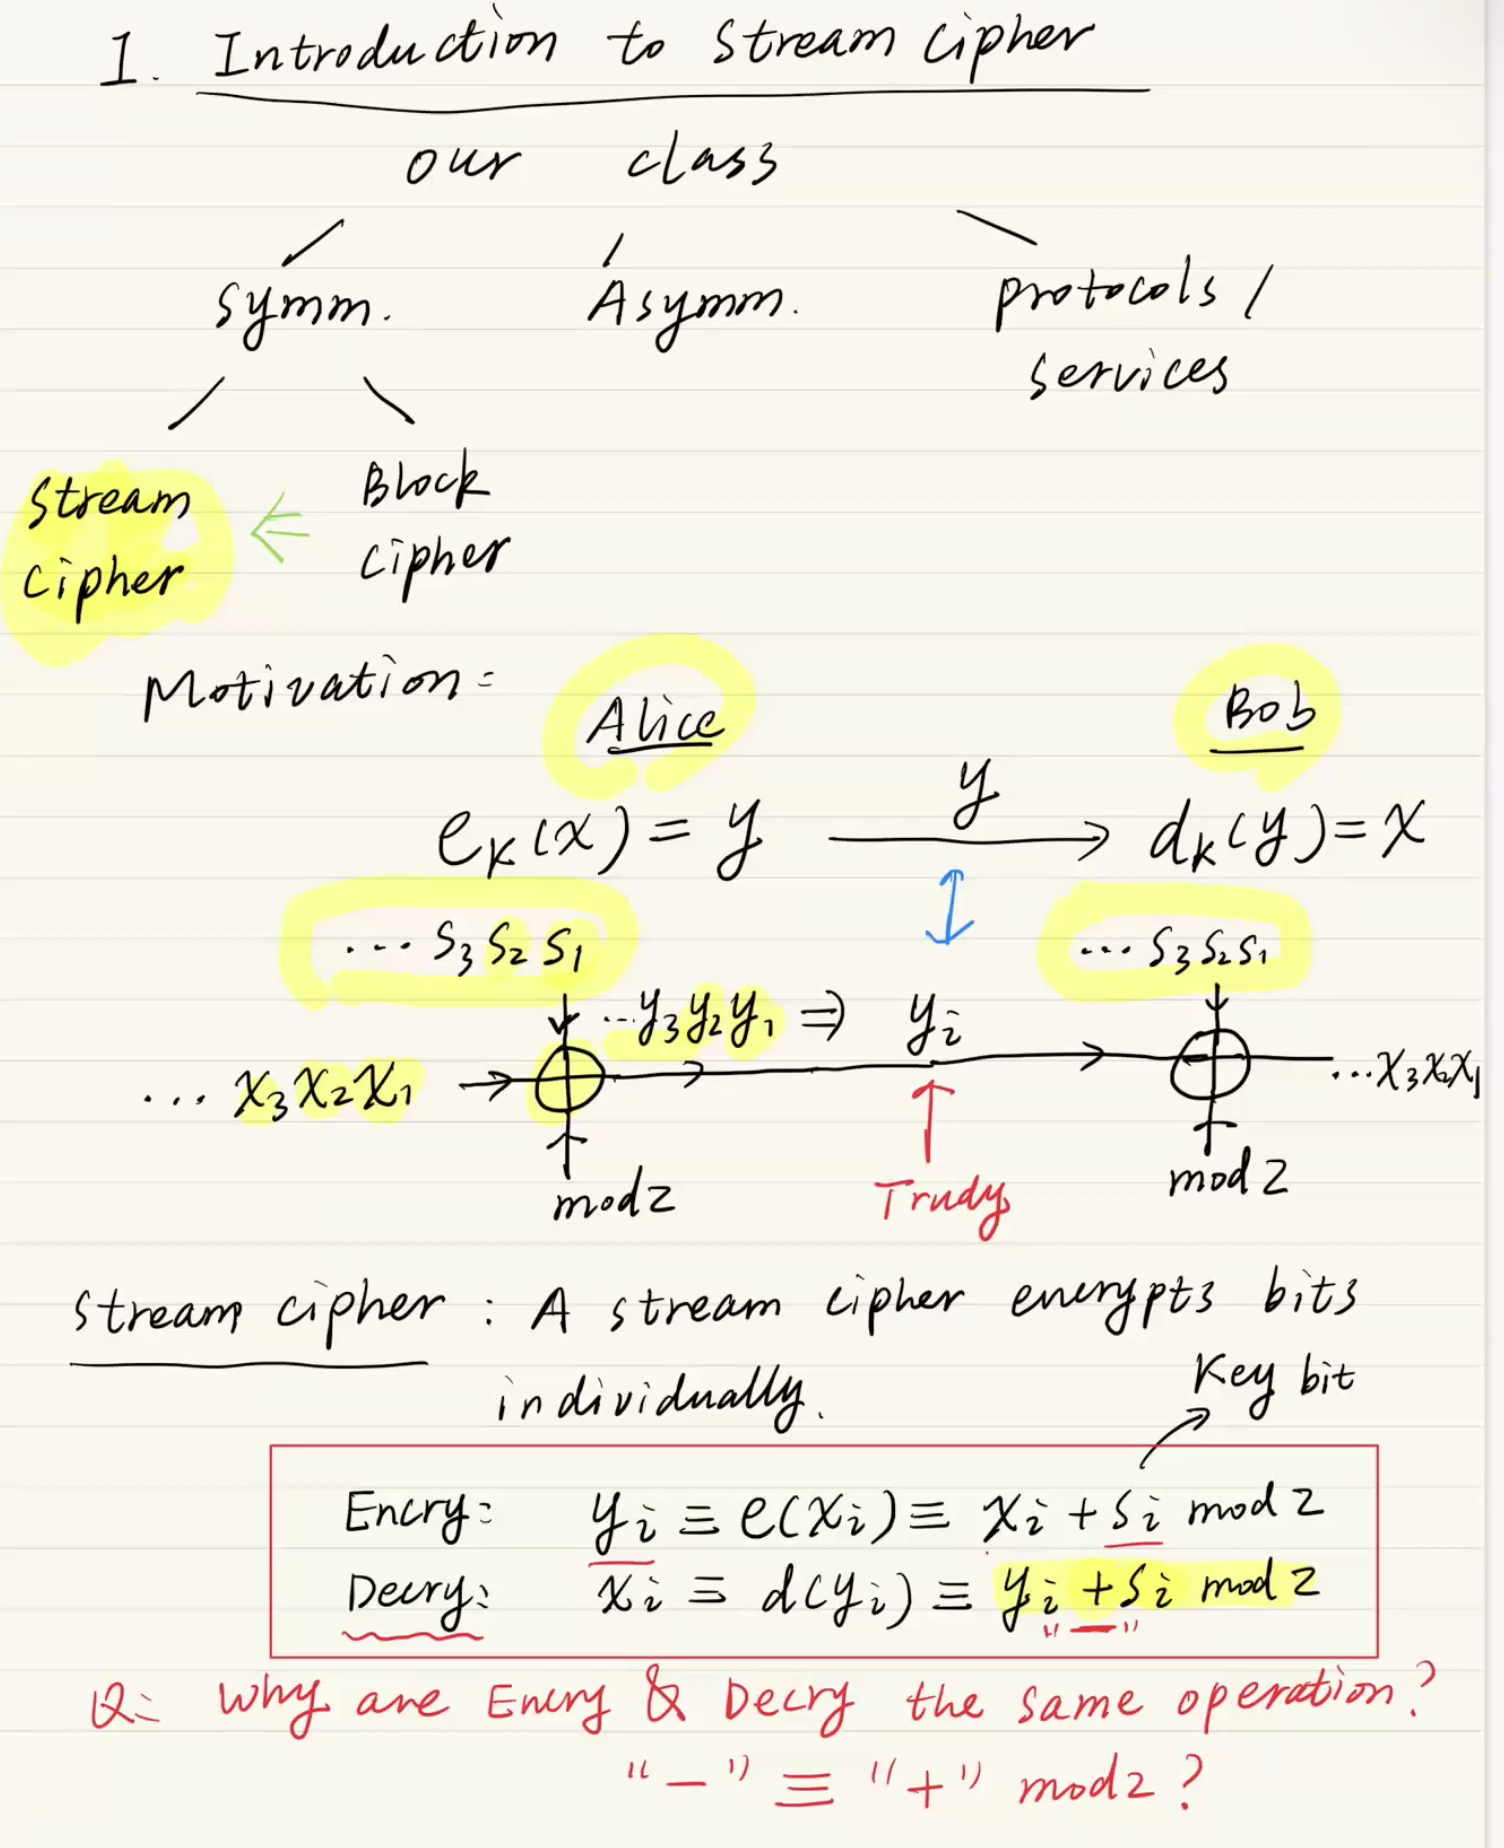 1. Introduction to Stream Cipher
our class
Symm. Asymm. protocols /
services
Stream
Cipher
Block
cipher
Motivation:
Alice Bob
e_K(x) = y y d_K(y) = x
... s3 s2 s1 ... s3 s2 s1
... y3 y2 y1 ⇒ yi
... x3 x2 x1 ... x3 x2 x1
mod 2 Trudy mod 2
Stream cipher : A stream cipher encrypts bits
individually.
Key bit
Encry: yi ≡ e(xi) ≡ xi + si mod 2
Decry: xi ≡ d(yi) ≡ yi + si mod 2
"—"
Q: Why are Encry & Decry the same operation?
"—" ≡ "+" mod 2 ?